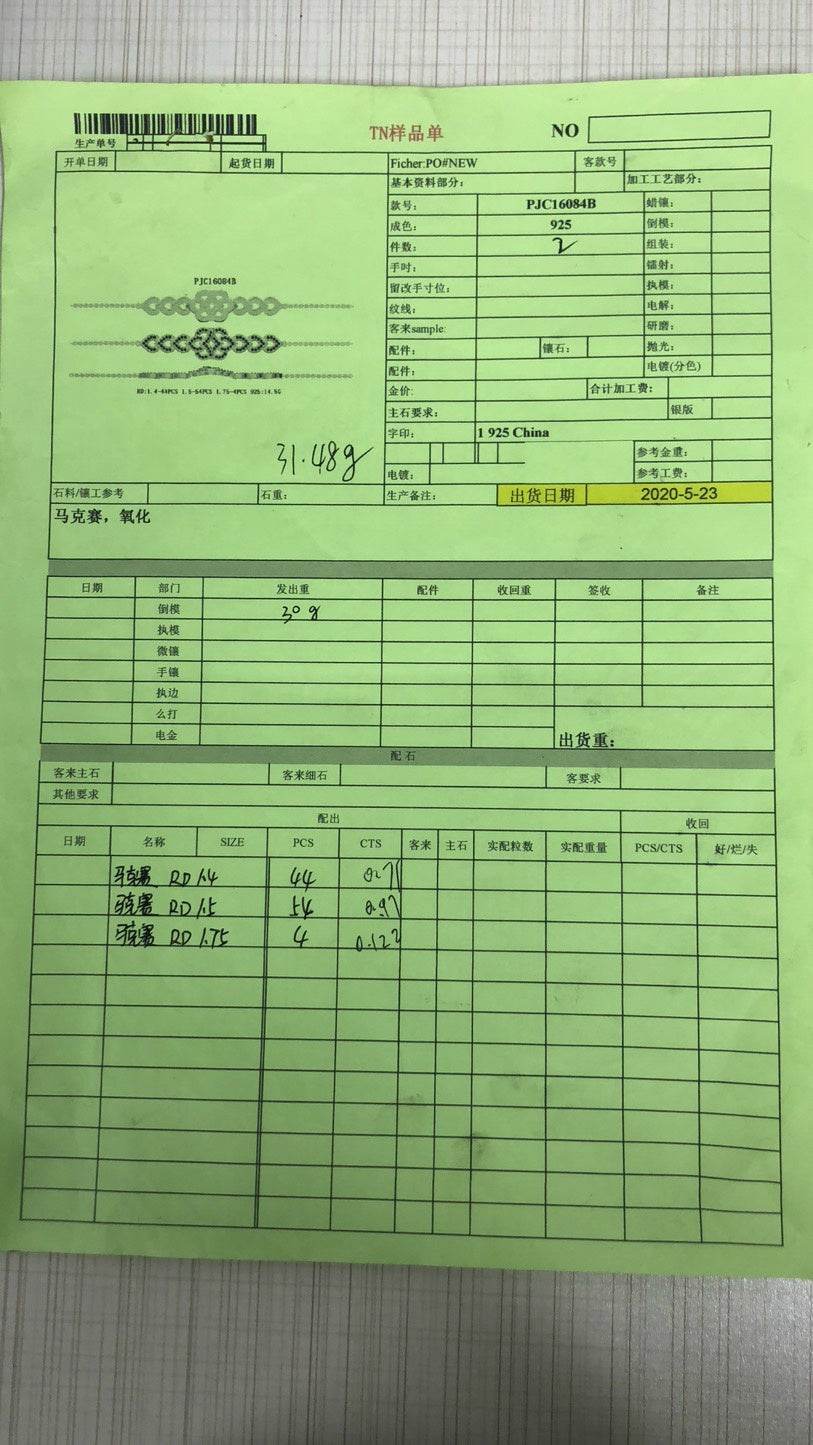 TN样品单
NO
生产单号
开单日期 起货日期 Ficher:PO#NEW 客款号
基本资料部分: 加工工艺部分:
款号: PJC16084B 蜡镶:
成色: 925 倒模:
件数: 2 组装:
手吋: 镭射:
留改手寸位: 执模:
纹线: 电解:
客来sample: 研磨:
配件: 镶石: 抛光:
配件: 电镀(分色)
金价: 合计加工费:
主石要求: 银版
字印: 1 925 China
参考金重:
电镀: 参考工费:
PJC16084B
RD:1.4-44PCS 1.5-54PCS 1.75-4PCS 925:14.5G
31.48g
石料/镶工参考 石重: 生产备注: 出货日期 2020-5-23
马克赛，氧化
日期 部门 发出重 配件 收回重 签收 备注
倒模 30g
执模
微镶
手镶
执边
么打
电金 出货重:
配石
客来主石 客来细石 客要求
其他要求
配出 收回
日期 名称 SIZE PCS CTS 客来 主石 实配粒数 实配重量 PCS/CTS 好/烂/失
马克赛 RD 1.4 44
马克赛 RD 1.5 54
马克赛 RD 1.75 4 0.122